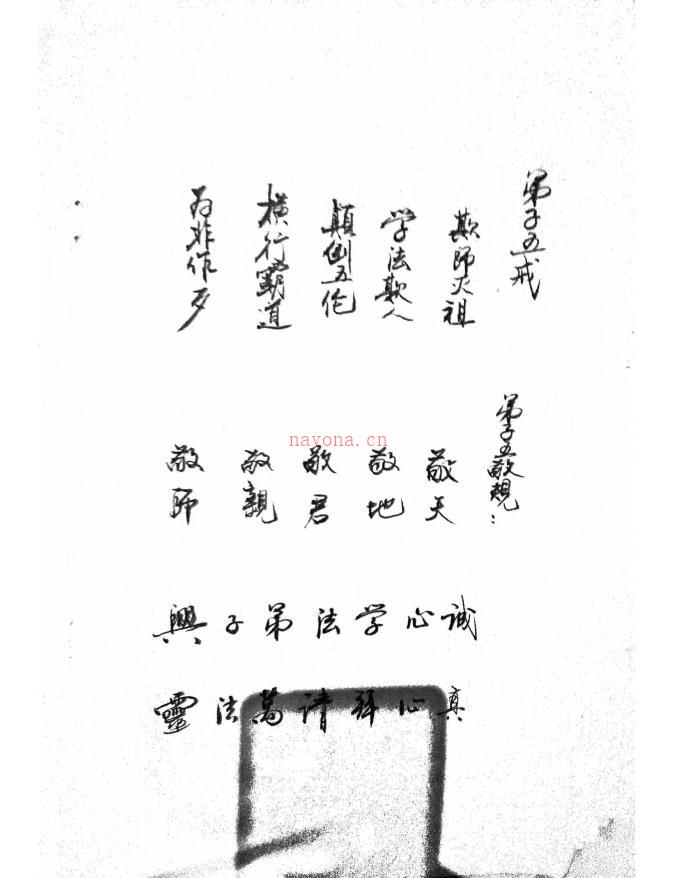 弟子五戒
欺师灭祖
学法欺人
顛倒五伦
横行霸道
为非作歹
弟子五敬規：
敬天
敬地
敬君
敬親
敬師
誠心学法弟子興
真心拜请萬法靈
nayona.cn